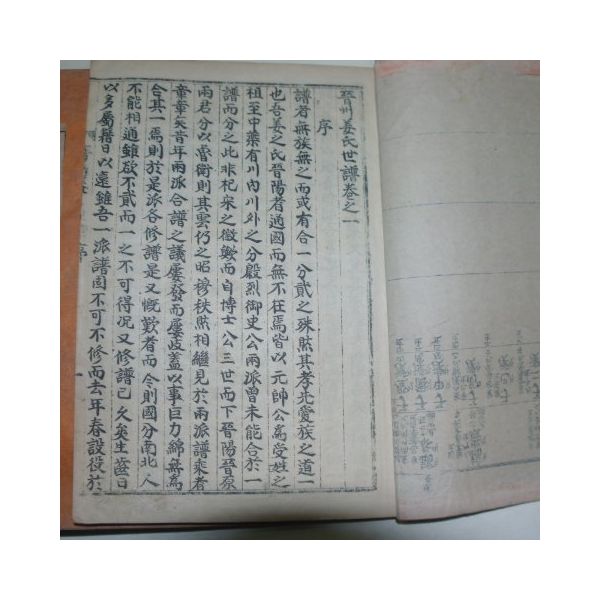 晉州姜氏世譜卷之一
序
譜者無族無之而或有合一分貳之殊然其孝先愛族之道一
也吾姜之氏晉陽者通國而無不在焉皆以元帥公爲受姓之
祖至中葉有川內川外之分殷烈御史公兩派曾未能合於一
譜而分之此非杞宋之徵歟而自博士公三世而下晉陽晉原
兩君分以魯衛則其雲仍之昭穆秩然相繼見於兩派譜乘者
章章矣昔年兩派合譜之議屢發而屢歧蓋以事巨力綿無爲
合其一焉則於是派各修譜是又慨歎者而今則國分南北人
不能相通雖欲不貳而一之不可得況又修譜已久矣生齒日
以多屬籍日以遠雖吾一派譜固不可不修而去年春設役於